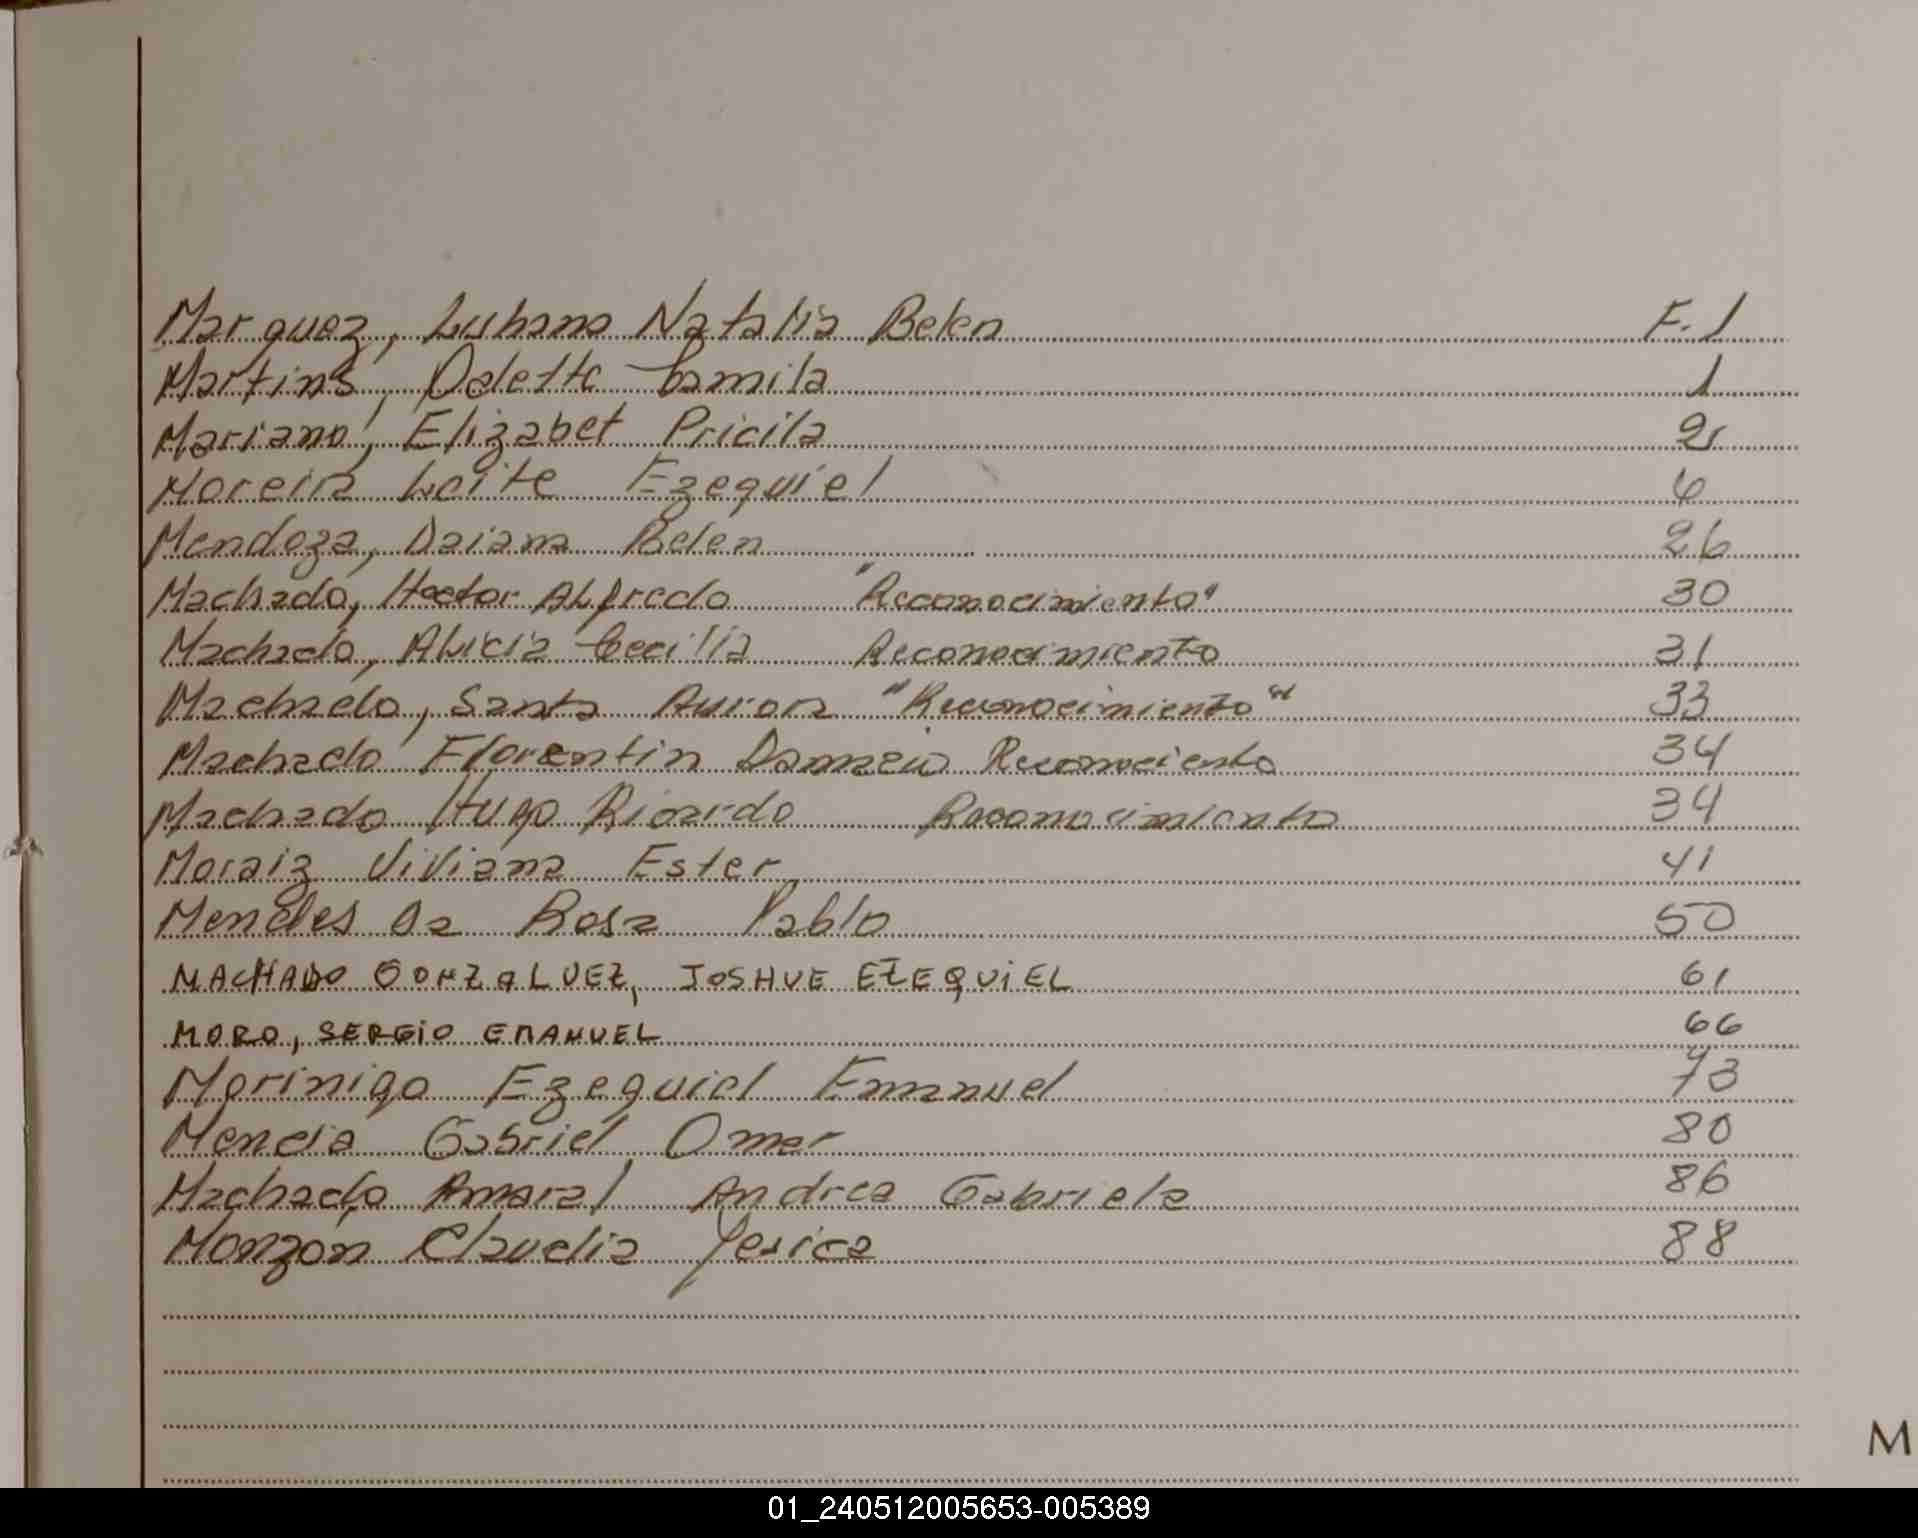 Marquez, Luhana Natalia Belen F. 1
Martins, Odette Camila 1
Mariano, Elizabet Pricila 2
Moreira Leite Ezequiel 6
Mendoza, Daiana Belen 26
Machado, Hector Alfredo "Reconocimiento" 30
Machado, Alicia Cecilia Reconocimiento 31
Machado, Santa Aurora "Reconocimiento" 33
Machado Florentin Reconociento 34
Machado Hugo Ricardo Reconocimiento 34
Moraiz Viviana Ester 41
Mendes Da Rosa Pablo 50
MACHADO GONZALVEZ, JOSHUE EZEQUIEL 61
MORO, SERGIO EMANUEL 66
Morinigo Ezequiel Emanuel 73
Mencia Gabriel Omar 80
Machado Amaral Andrea Gabriela 86
Monzón Claudia Yesica 88
M
01_240512005653-005389